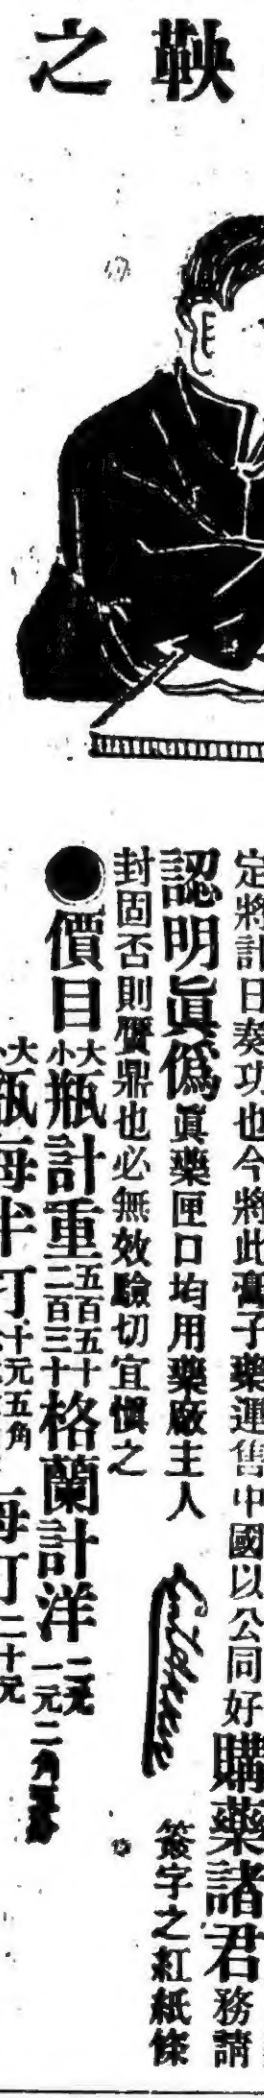 鞅之
定將計日奏功也今將此膏子藥運售中國以公同好購藥諸君務請
認明眞僞眞藥匣口均用藥廠主人 簽字之紅紙條
封固否則贋鼎也必無效驗切宜愼之
●價目大小瓶計重五百五十二百三十格蘭計洋二元一元二角
大小瓶每半打十元五角每打二十元